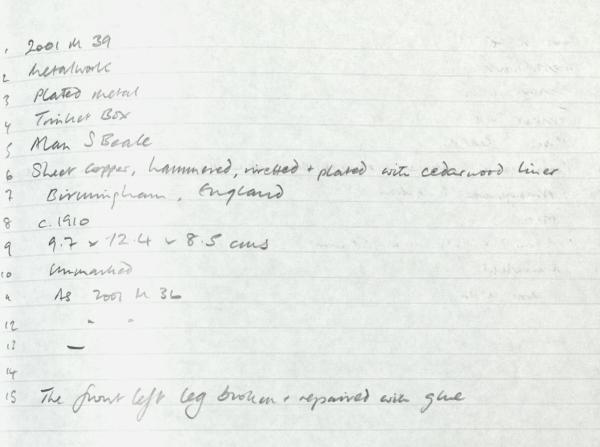 1 2001 M 39
2 Metalwork
3 Plated metal
4 Trinket Box
5 Alan S Beale
6 Sheet copper, hammered, rivetted + plated with cedarwood liner
7 Birmingham, England
8 c. 1910
9 9.7 x 12.4 x 8.5 cms
10 Unmarked
11 As 2001 M 36
12 " "
13 —
14
15 The front left leg broken + repaired with glue